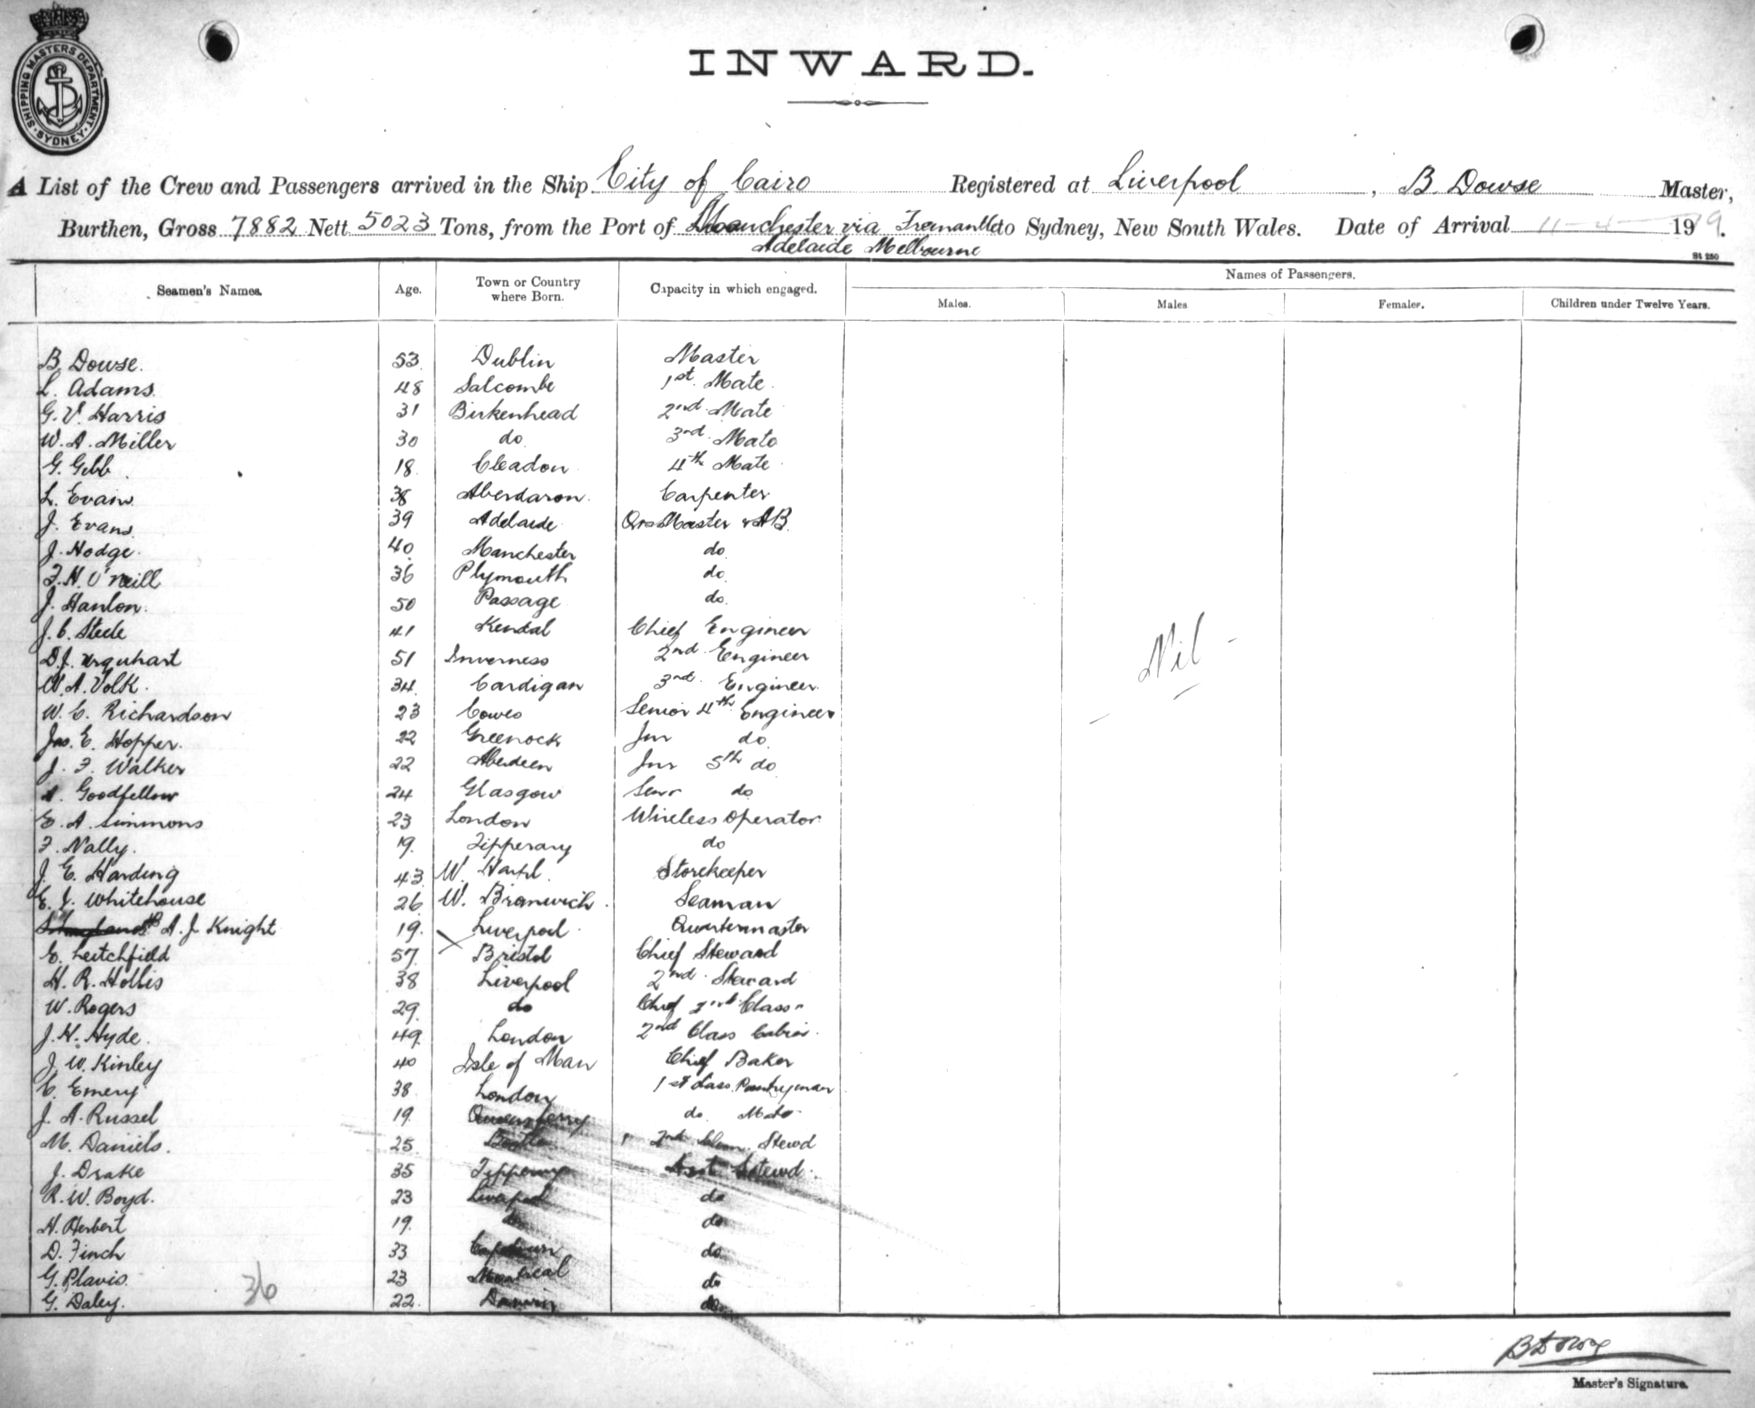 SHIPPING MASTERS DEPARTMENT · SYDNEY ·
INWARD.
A List of the Crew and Passengers arrived in the Ship City of Cairo Registered at Liverpool, B. Dowse Master,
Burthen, Gross 7882 Nett 5023 Tons, from the Port of Manchester via Fremantle to Sydney, New South Wales. Date of Arrival 11-4- 19 19.
Adelaide Melbourne
Seamen's Names. Age. Town or Country where Born. Capacity in which engaged. Names of Passengers.
Males. Males Females. Children under Twelve Years.
B. Dowse. 53. Dublin Master
L. Adams. 48 Salcombe 1st Mate.
G. V. Harris 31 Birkenhead 2nd Mate
W. A. Miller 30 do. 3rd Mate
G. Gibb 18. Cleadon 4th Mate
L. Evans 38 Aberdaron. Carpenter
J. Evans 39 Adelaide QrsMaster & AB.
J. Hodge. 40. Manchester do.
F. H. O'Neill 36 Plymouth do.
J. Hanlon. 50 Passage do.
J. C. Steele 41 Kendal Chief Engineer
D. J. Urquhart 51 Inverness 2nd Engineer
W. A. Volk. 34 Cardigan 3rd Engineer.
W. C. Richardson 23 Cowes Senior 4th Engineer
Jas. E. Hopper. 22 Greenock Jnr do.
J. F. Walker 22 Aberdeen Jnr 5th do
Goodfellow 24 Glasgow Senr do
E. A. Simmons 23 London Wireless Operator
F. Nally. 19. Tipperary do
J. E. Harding 43 W. Storekeeper
E. J. Whitehouse 26 W. Bromwich. Seaman
A. J. Knight 19. Liverpool. Quartermaster
E. Leitchfield 57. Bristol Chief Steward
H. R. Hollis 38 Liverpool 2nd Steward
W. Rogers 29. do Chief Class
J. H. Hyde. 49. London 2nd Class Cabin.
J. W. Kinley 40 Isle of Man Chief Baker
C. Emery 38 London 1st Class Pantryman
J. A. Russel 19. Queensferry do. Mate
M. Daniels. 25 Bootle 2nd Stewd
J. Drake 35 Tipperary Asst Stewd.
R. W. Boyd. 23 Liverpool do
H. Herbert 19. do do
D. Finch 33 Capetown do.
G. Plavis. 23 Montreal do
G. Daley. 22. Darwin do
Nil
36
B Dowse
Master's Signature.